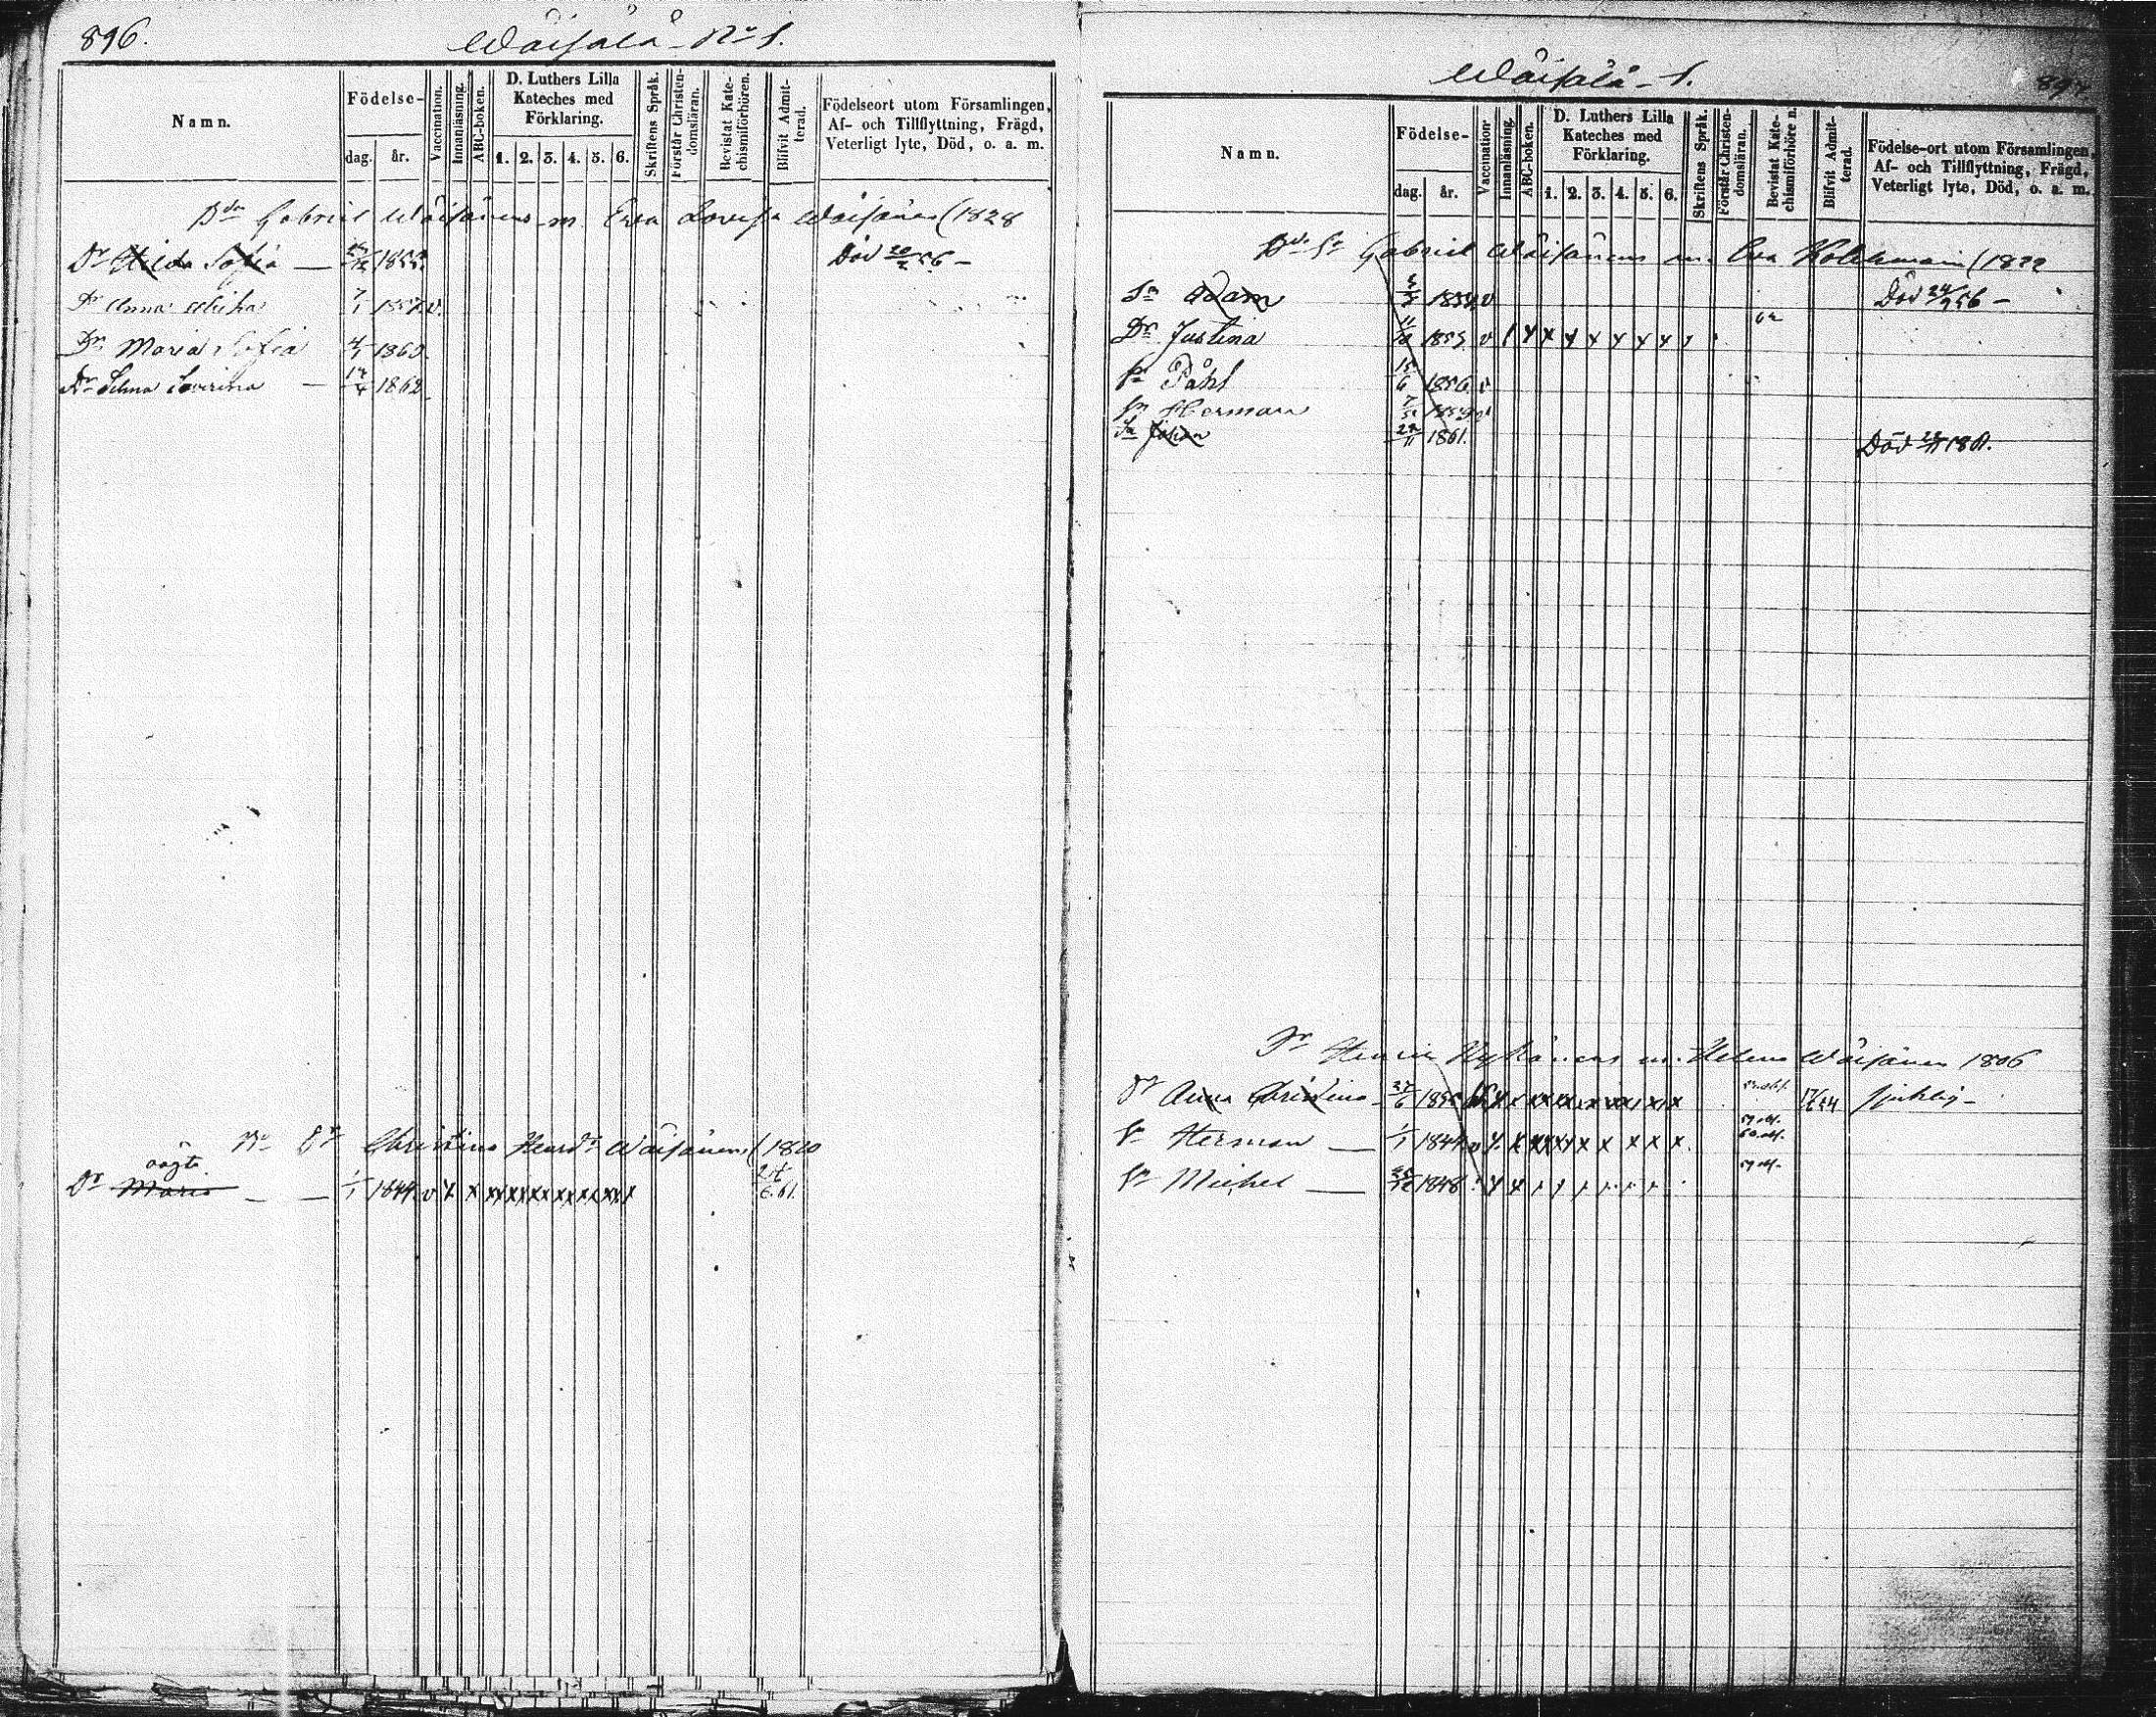 896.
Wäisälä No 1.
Namn.
Födelse-
dag. år.
Vaccination.
Innanläsning.
ABC-boken.
D. Luthers Lilla
Kateches med
Förklaring.
1. 2. 3. 4. 5. 6.
Skriftens Språk.
Förstår Christen-
domsläran.
Bevistat Kate-
chismiförhören.
Blifvit Admit-
terad.
Födelseort utom Församlingen,
Af- och Tillflyttning, Frägd,
Veterligt lyte, Död, o. a. m.
Gabriel Wäisänens m. Eva Lovisa Wäisänen (1828
Dr Hilda Sofia 1855. Död 20/2 56
Dr Anna 7/1 1857. v.
Dr Maria Sofia 4/1 1860.
Dr Selma Severina 1862.
Christina Henrdr Wäisänens (1820
Dr Maria 1/1 1844. v x x x x x x x x x x x 6.61.
Wäisälä 1.
897
Namn.
Födelse-
dag. år.
Vaccination
Innanläsning.
ABC-boken.
D. Luthers Lilla
Kateches med
Förklaring.
1. 2. 3. 4. 5. 6.
Skriftens Språk.
Förstår Christen-
domsläran.
Bevistat Kate-
chismiförhöre n.
Blifvit Admit-
terad.
Födelse-ort utom Församlingen,
Af- och Tillflyttning, Frägd,
Veterligt lyte, Död, o. a. m.
Gabriel Wäisänens m. Eva Holthmain (1822
Sn Adam 1854. v Död 24/9 56
Dr Justina 1853. v x x x x x x x
Sn Påhl 15/6 1856. v
Sn Herman 1859 v
Sn Johan 22/11 1861. Död 1861.
Henric Nykänens m. Helena Wäisänen 1806
Dr Anna Christina 27/6 x x x x x x x sjuklig
Sn Herman 1/1 1844. v x x x x x x x x x
Sn Michel 1848 x x